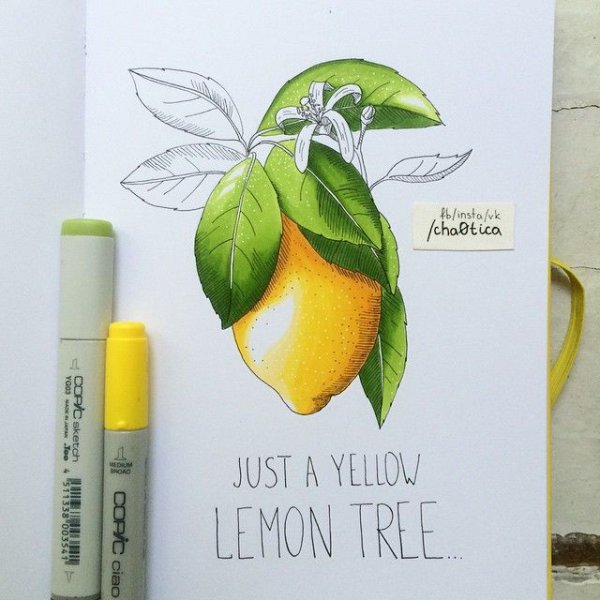 fb/insta/vk
/cha0tica
JUST A YELLOW
LEMON TREE...
COPIC sketch
YG03 MADE IN JAPAN .Too
4 511338 003541
MEDIUM
BROAD
COPIC ciao